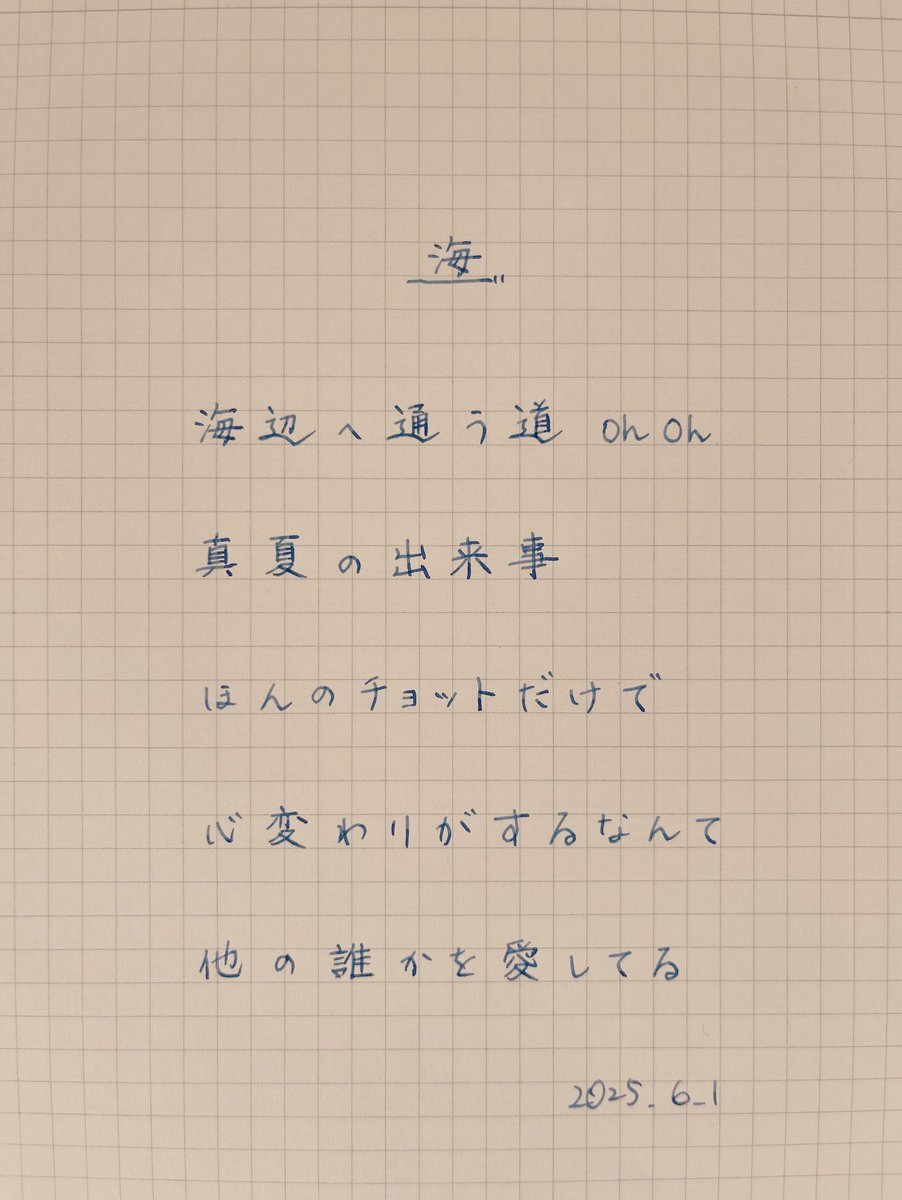 海
海辺へ通う道 Oh Oh
真夏の出来事
ほんのチョットだけで
心変わりがするなんて
他の誰かを愛してる
2025.6.1